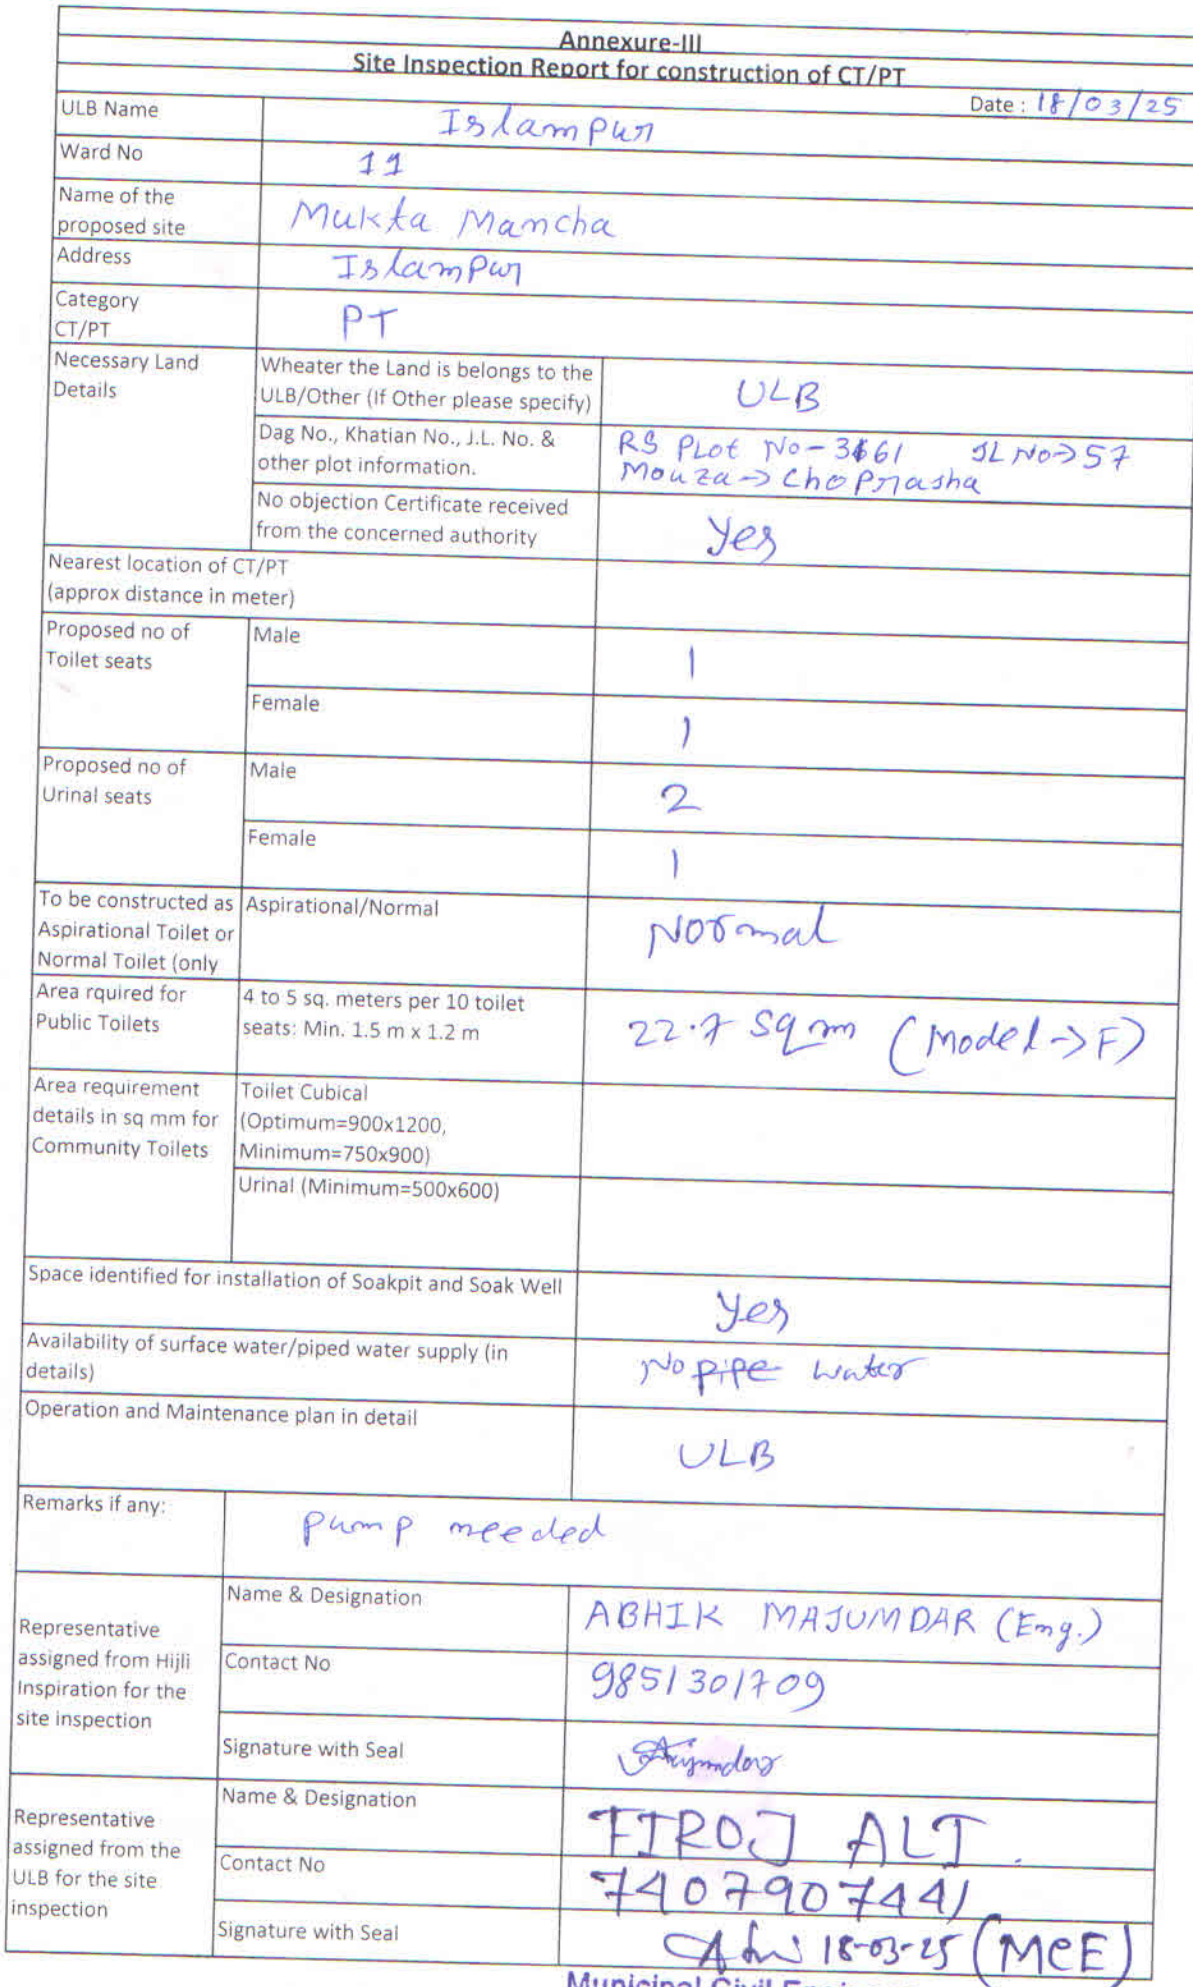 Annexure-III
Site Inspection Report for construction of CT/PT
Date : 18/03/25
ULB Name Islampur
Ward No 11
Name of the
proposed site Mukta Mancha
Address Islampur
Category
CT/PT PT
Necessary Land
Details
Wheater the Land is belongs to the
ULB/Other (If Other please specify) ULB
Dag No., Khatian No., J.L. No. &
other plot information.
RS Plot No- 3661 JL No→57
Mouza→ Choprasha
No objection Certificate received
from the concerned authority Yes
Nearest location of CT/PT
(approx distance in meter)
Proposed no of
Toilet seats
Male 1
Female 1
Proposed no of
Urinal seats
Male 2
Female 1
To be constructed as
Aspirational Toilet or
Normal Toilet (only
Aspirational/Normal Normal
Area rquired for
Public Toilets
4 to 5 sq. meters per 10 toilet
seats: Min. 1.5 m x 1.2 m
22.7 sqm (Model→F)
Area requirement
details in sq mm for
Community Toilets
Toilet Cubical
(Optimum=900x1200,
Minimum=750x900)
Urinal (Minimum=500x600)
Space identified for installation of Soakpit and Soak Well Yes
Availability of surface water/piped water supply (in
details) No pipe water
Operation and Maintenance plan in detail ULB
Remarks if any: pump needed
Representative
assigned from Hijli
Inspiration for the
site inspection
Name & Designation ABHIK MAJUMDAR (Eng.)
Contact No 9851301709
Signature with Seal
Representative
assigned from the
ULB for the site
inspection
Name & Designation FIROJ ALI.
Contact No 7407907441
Signature with Seal 18-03-25 (MCE)
Municipal Civil